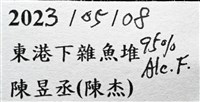 2023 105108
東港下雜魚堆 95% Alc. F.
陳昱丞(陳杰)